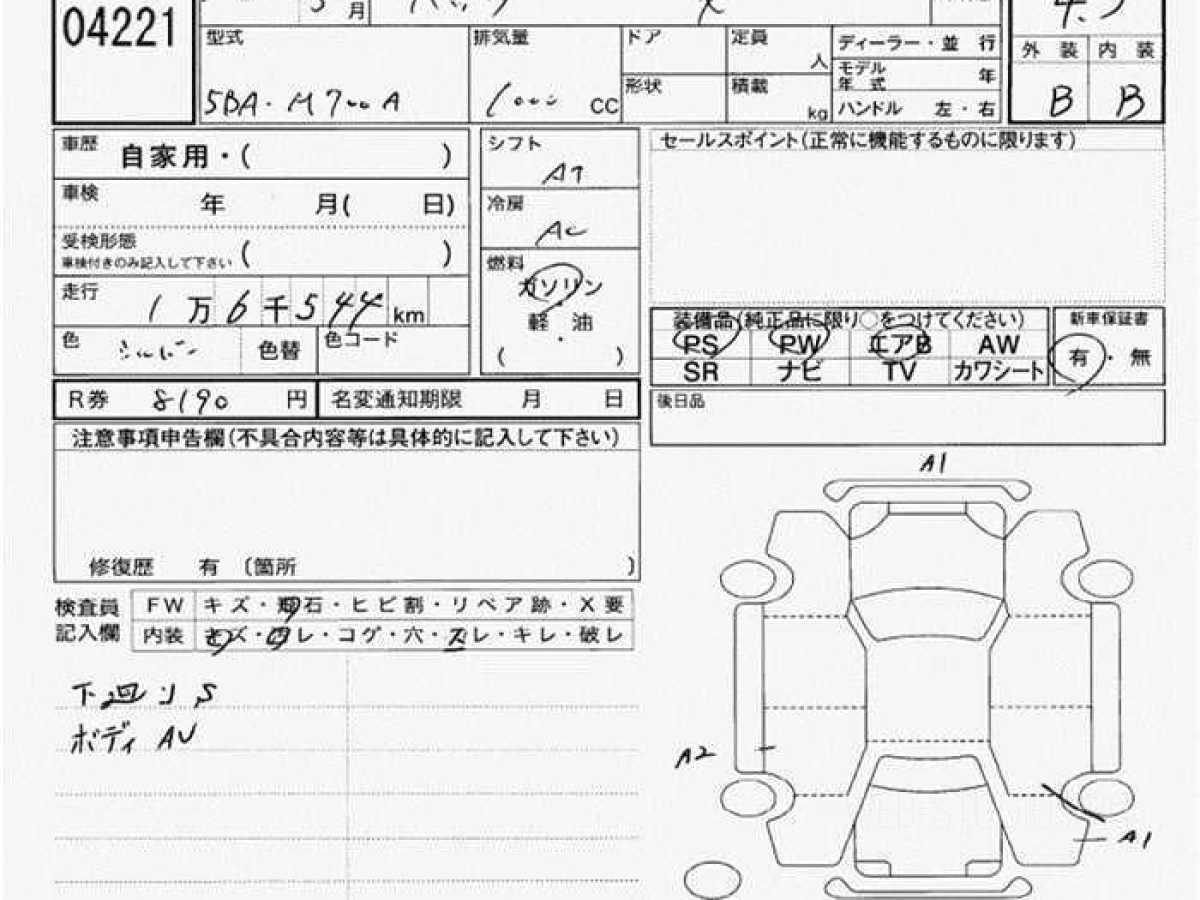 04221
月
4.5
型式
排気量
ドア
定員
人
ディーラー・並 行
外 装
内 装
5BA・M700A
1000 CC
形状
積載
kg
モデル年式 年
ハンドル 左・右
B
B
車歴
自家用・( )
シフト
AT
セールスポイント(正常に機能するものに限ります)
車検
年 月( 日)
冷房
AC
受検形態
車検付きのみ記入して下さい
( )
燃料
ガソリン
軽 油
・
( )
走行
1万6千544km
色
シルバー
色替
色コード
装備品(純正品に限り○をつけてください)
PS PW エアB AW
SR ナビ TV カワシート
新車保証書
有・無
R券 8190 円
名変通知期限 月 日
後日品
注意事項申告欄(不具合内容等は具体的に記入して下さい)
修復歴 有 〔箇所 〕
検査員記入欄
FW キズ・飛石・ヒビ割・リペア跡・X要
内装 キズ・ヨゴレ・コゲ・穴・スレ・キレ・破レ
下廻りS
ボディ AU
A1
A2
A1